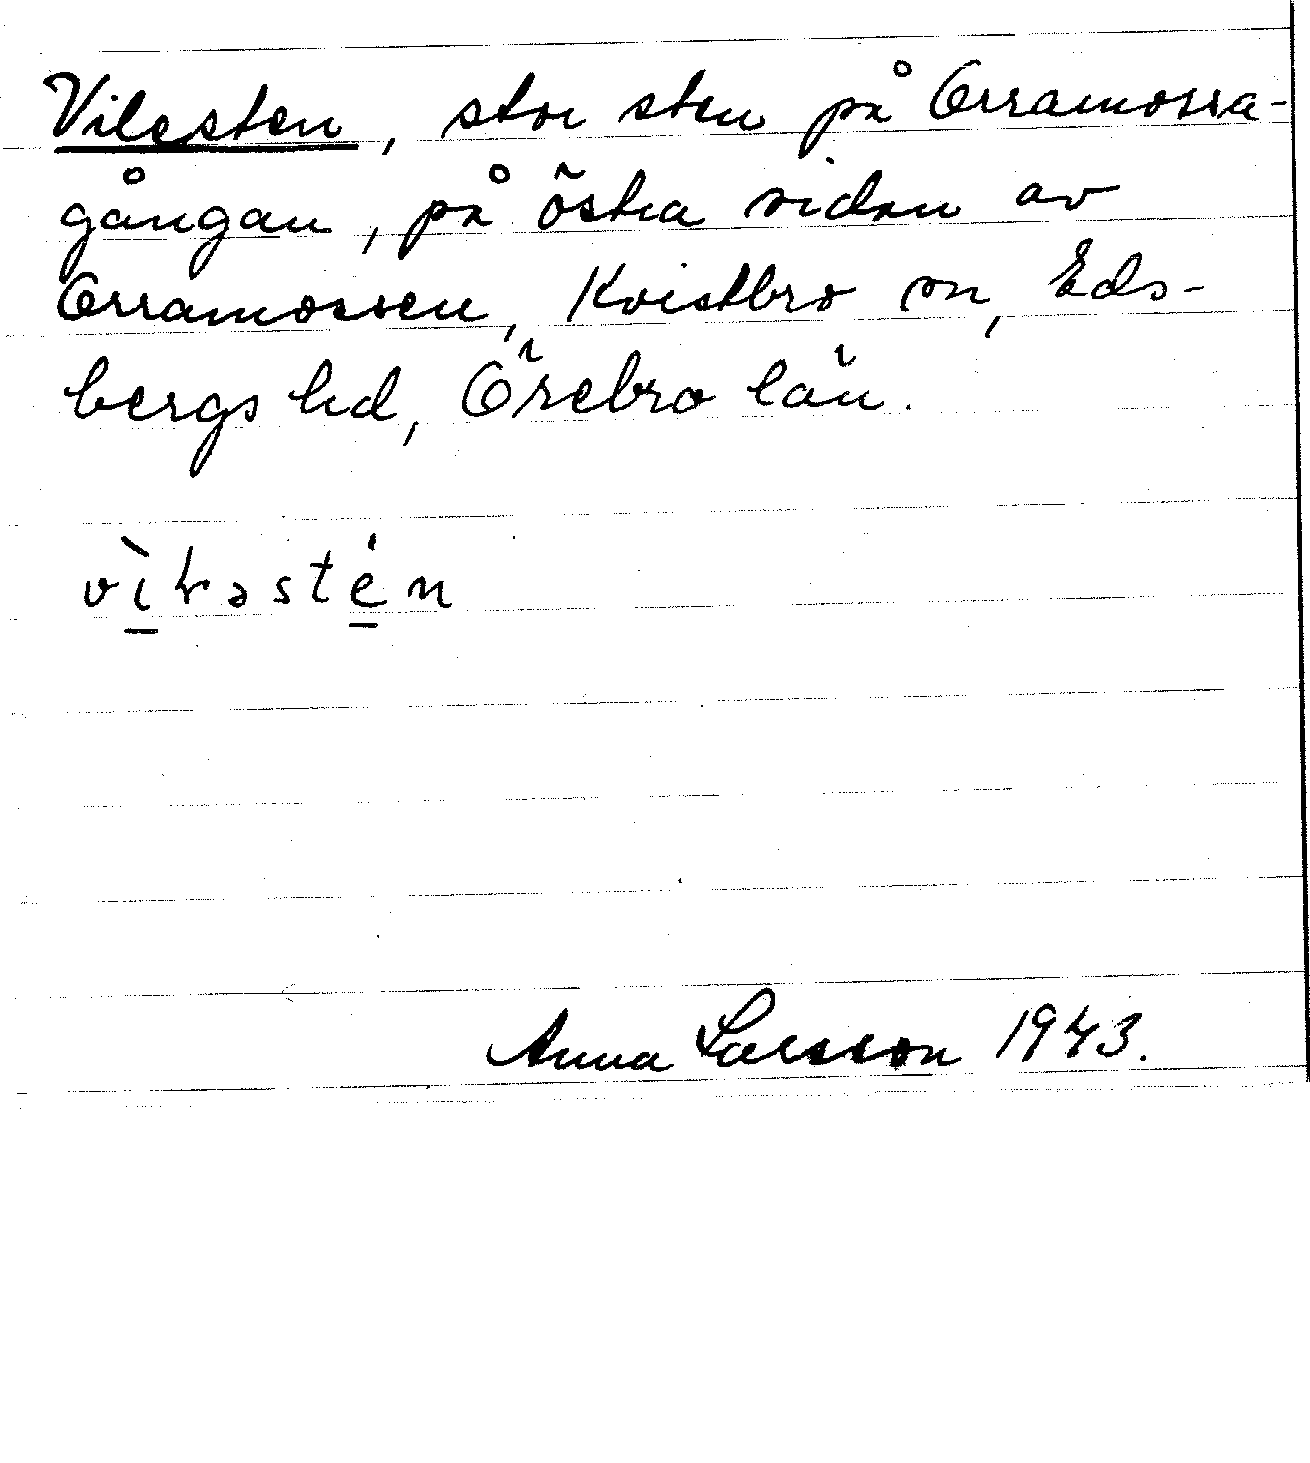 Vilesten, stor sten på Orramossa-
gångan, på östra sidan av
Orramossen, Kvistbro sn, Eds-
bergs hd, Örebro län.
vìləstén
Anna Larsson 1943.